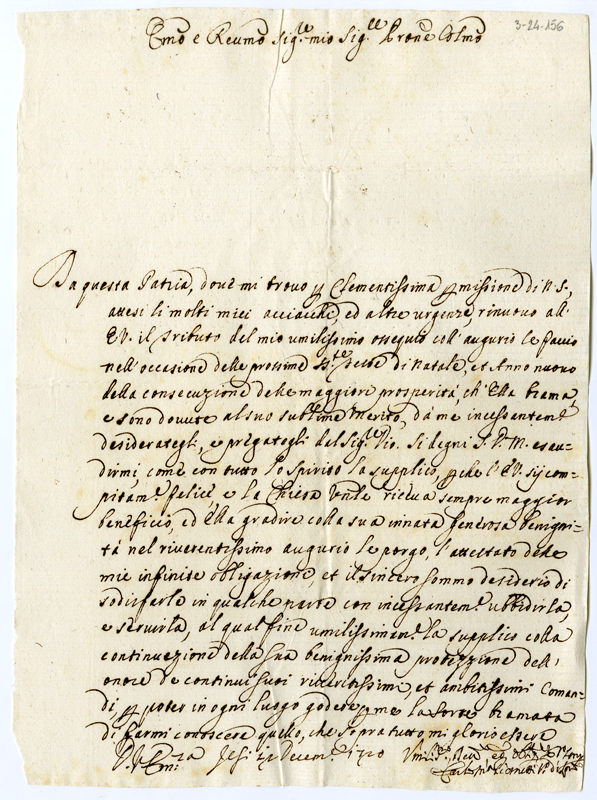 3-24-156
Emo e Revmo Sig.re mio Sig.re Prone Colmo
Da questa Patria, dove mi trovo p Clementissima pmissione di N. S.,
attesi li molti miei acciacchi, ed altre urgenze, rinuovo all'
E.V. il tributo del mio umilissimo ossequio coll' augurio le faccio
nell' occasione delle prossime S.te Feste di Natale, et Anno nuovo
della consecuzione delle maggiori prosperità, ch' Ella brama,
e sono dovute al suo sublime merito, da me incessantem.e
desiderategli, e pregategli dal Sig.re Iio. Si degni S. D. M. esau=
dirmi, come con tutto lo Spirito la supplico, pche l' E.V. sij com=
pitam.e felice, e la Chiesa riceva sempre maggior
beneficio, ed Ella gradire colla sua innata generosa benigni=
tà nel riverentissimo augurio le porgo, l' attestato delle
mie infinite obligazioni, et il sincero sommo desiderio di
sodisfarle in qualche parte con incessantem.e ubbidirla,
e servirla, al qual fine umilissimam.e la supplico colla
continuazione della sua benignissima protezzione dell'
onore de continui suoi riveritissimi, et ambitissimi Coman=
di, p poter in ogni luogo godere p me la sorte bramata
di farmi conoscere quello, che sopra tutto mi glorio essere
Jesi Decem.e 1720